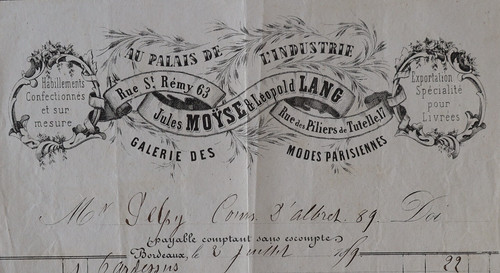 AU PALAIS DE L'INDUSTRIE
Habillements
Confectionnés
et sur
mesure
Rue St. Rémy 63
Jules MOŸSE & Léopold LANG
Rue des Piliers de Tutelle. 17
Exportation
Spécialité
pour
Livrées
GALERIE DES MODES PARISIENNES
Mr Delpy Cours d'albret 89. Doi
(payable comptant sans escompte)
Bordeaux, le 2 Juillet
1 22